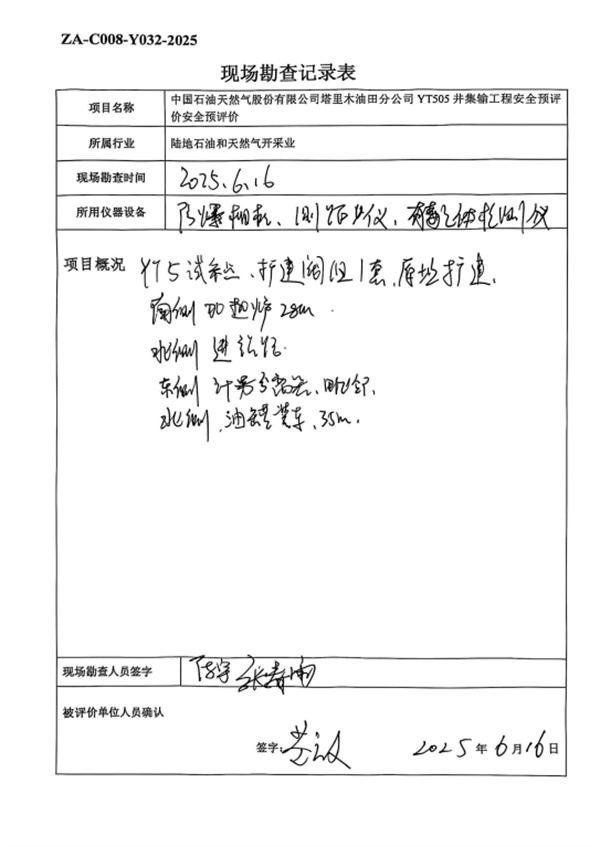 ZA-C008-Y032-2025
现场勘查记录表
项目名称
中国石油天然气股份有限公司塔里木油田分公司YT505井集输工程安全预评
价安全预评价
所属行业
陆地石油和天然气开采业
现场勘查时间
2025.6.16
所用仪器设备
防爆相机、测距仪、有毒气体检测仪
项目概况
YT5试采点、扩建阀组1套,原址扩建,
南侧 加热炉 28m.
北侧 进站路.
东侧 计量分离器、
北侧 油罐装车、35m.
现场勘查人员签字
陈宇 张春雨
被评价单位人员确认
签字:
2025年6月16日